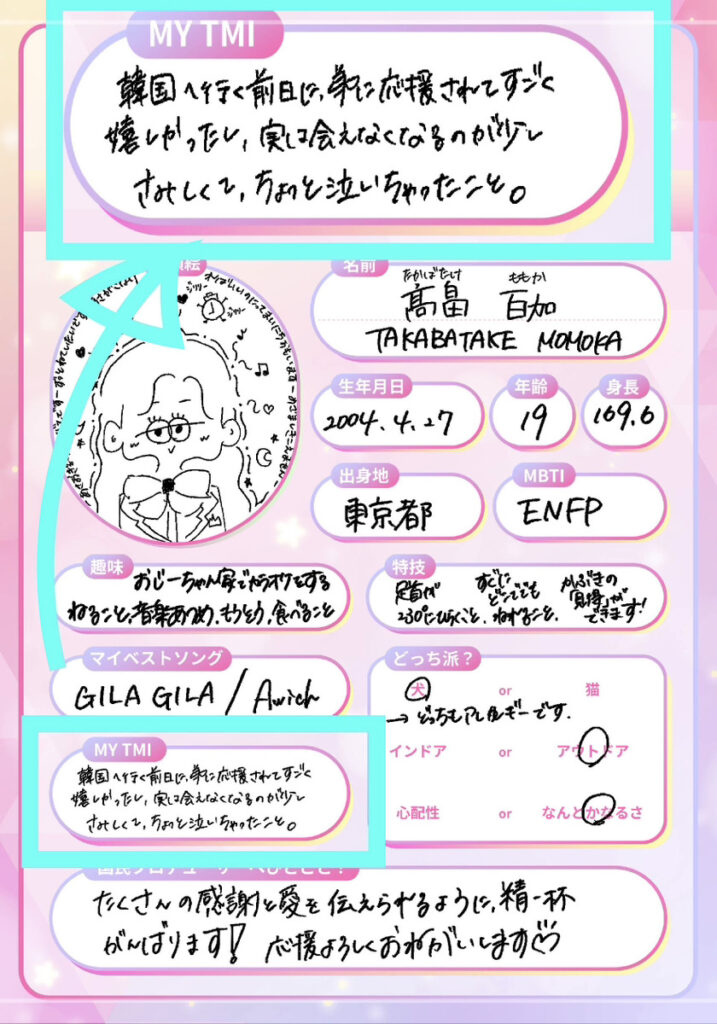 MY TMI
韓国へ行く前日に、弟に応援されてすごく
嬉しかったし、実は会えなくなるのが少し
さみしくて、ちょっと泣いちゃったこと。
名前
たかばたけ ももか
髙畠 百加
TAKABATAKE MOMOKA
生年月日
2004.4.27
年齢
19
身長
169.6
出身地
東京都
MBTI
ENFP
趣味
おじーちゃん家でカラオケをする
ねること、音楽あつめ、もうそう、食べること
特技
足首が 230°にひらくこと、
すぐに どこででも ねれること、
かぶきの 「見得」が できます!
マイベストソング
GILA GILA / Awich
どっち派?
犬 or 猫
→ どっちもアレルギーです.
インドア or アウトドア
心配性 or なんとかなるさ
MY TMI
韓国へ行く前日に、弟に応援されてすごく
嬉しかったし、実は会えなくなるのが少し
さみしくて、ちょっと泣いちゃったこと。
国民プロデューサーへひとこと!
たくさんの感謝と愛を伝えられるように、精一杯
がんばります! 応援よろしくおねがいします♡